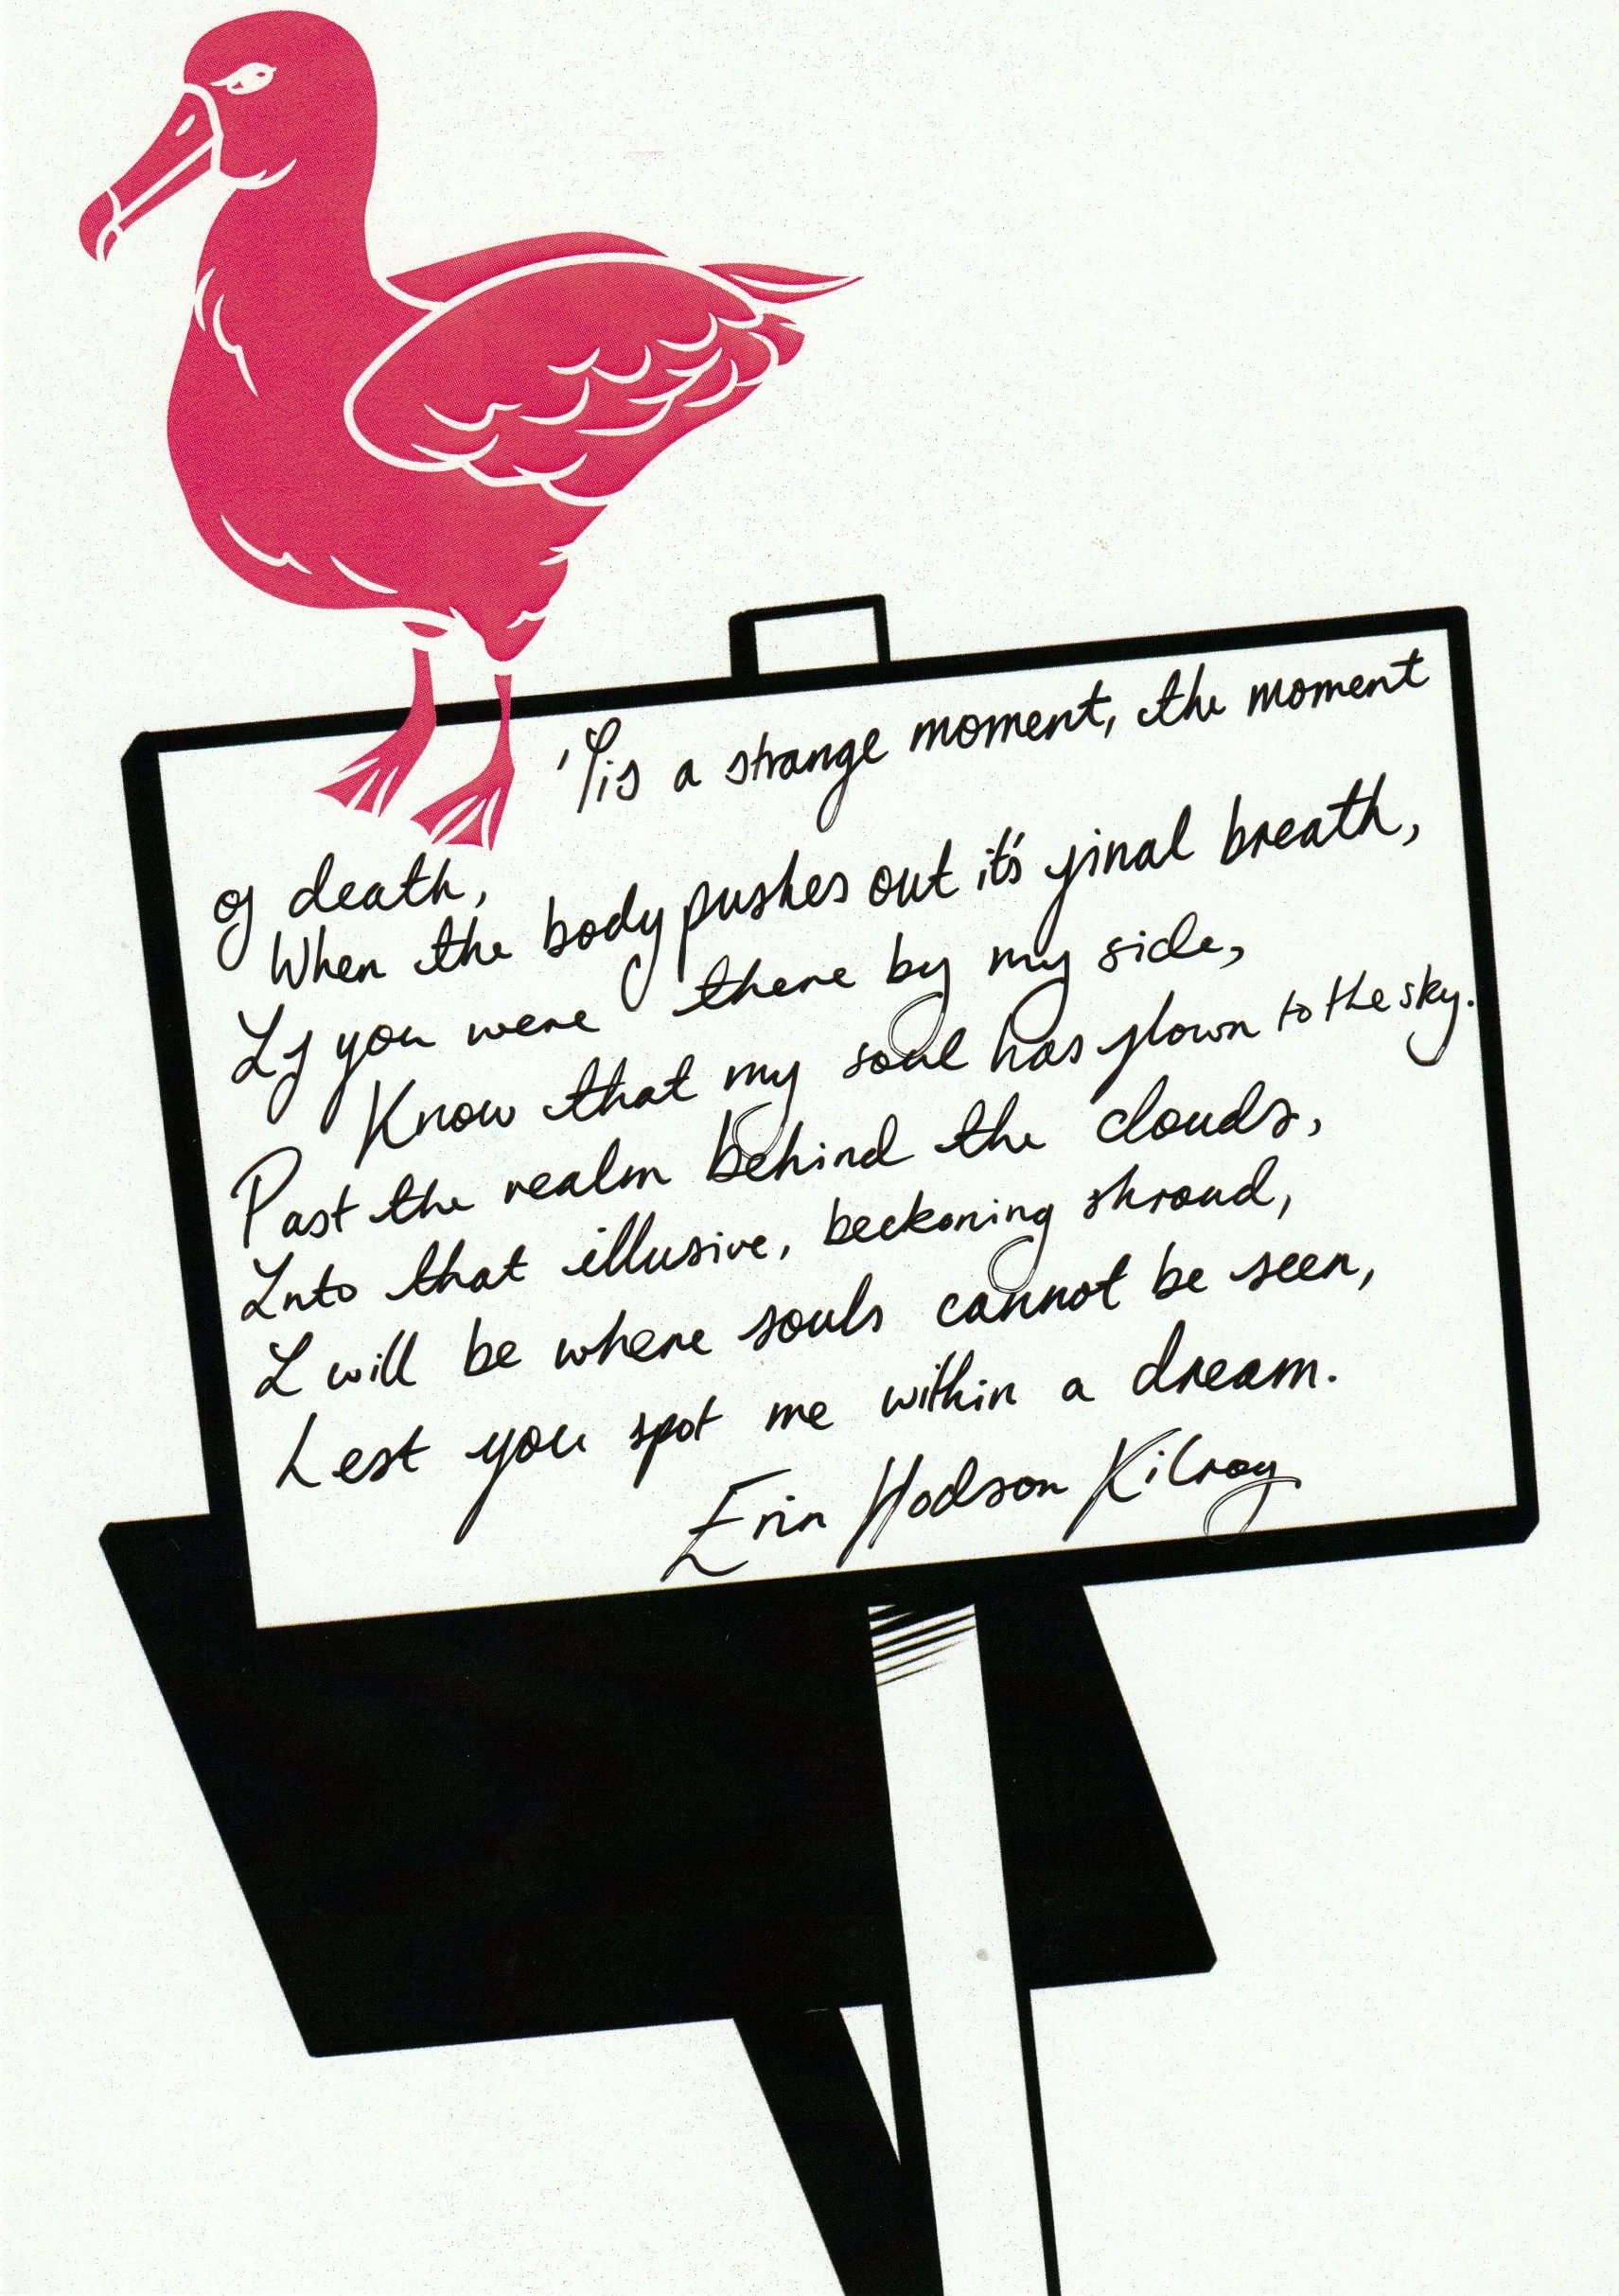 'Tis a strange moment, the moment
of death,
When the body pushes out it's final breath,
If you were there by my side,
Know that my soul has flown to the sky.
Past the realm behind the clouds,
Into that illusive, beckoning shroud,
I will be where souls cannot be seen,
Lest you spot me within a dream.
Erin Hodson Kilroy